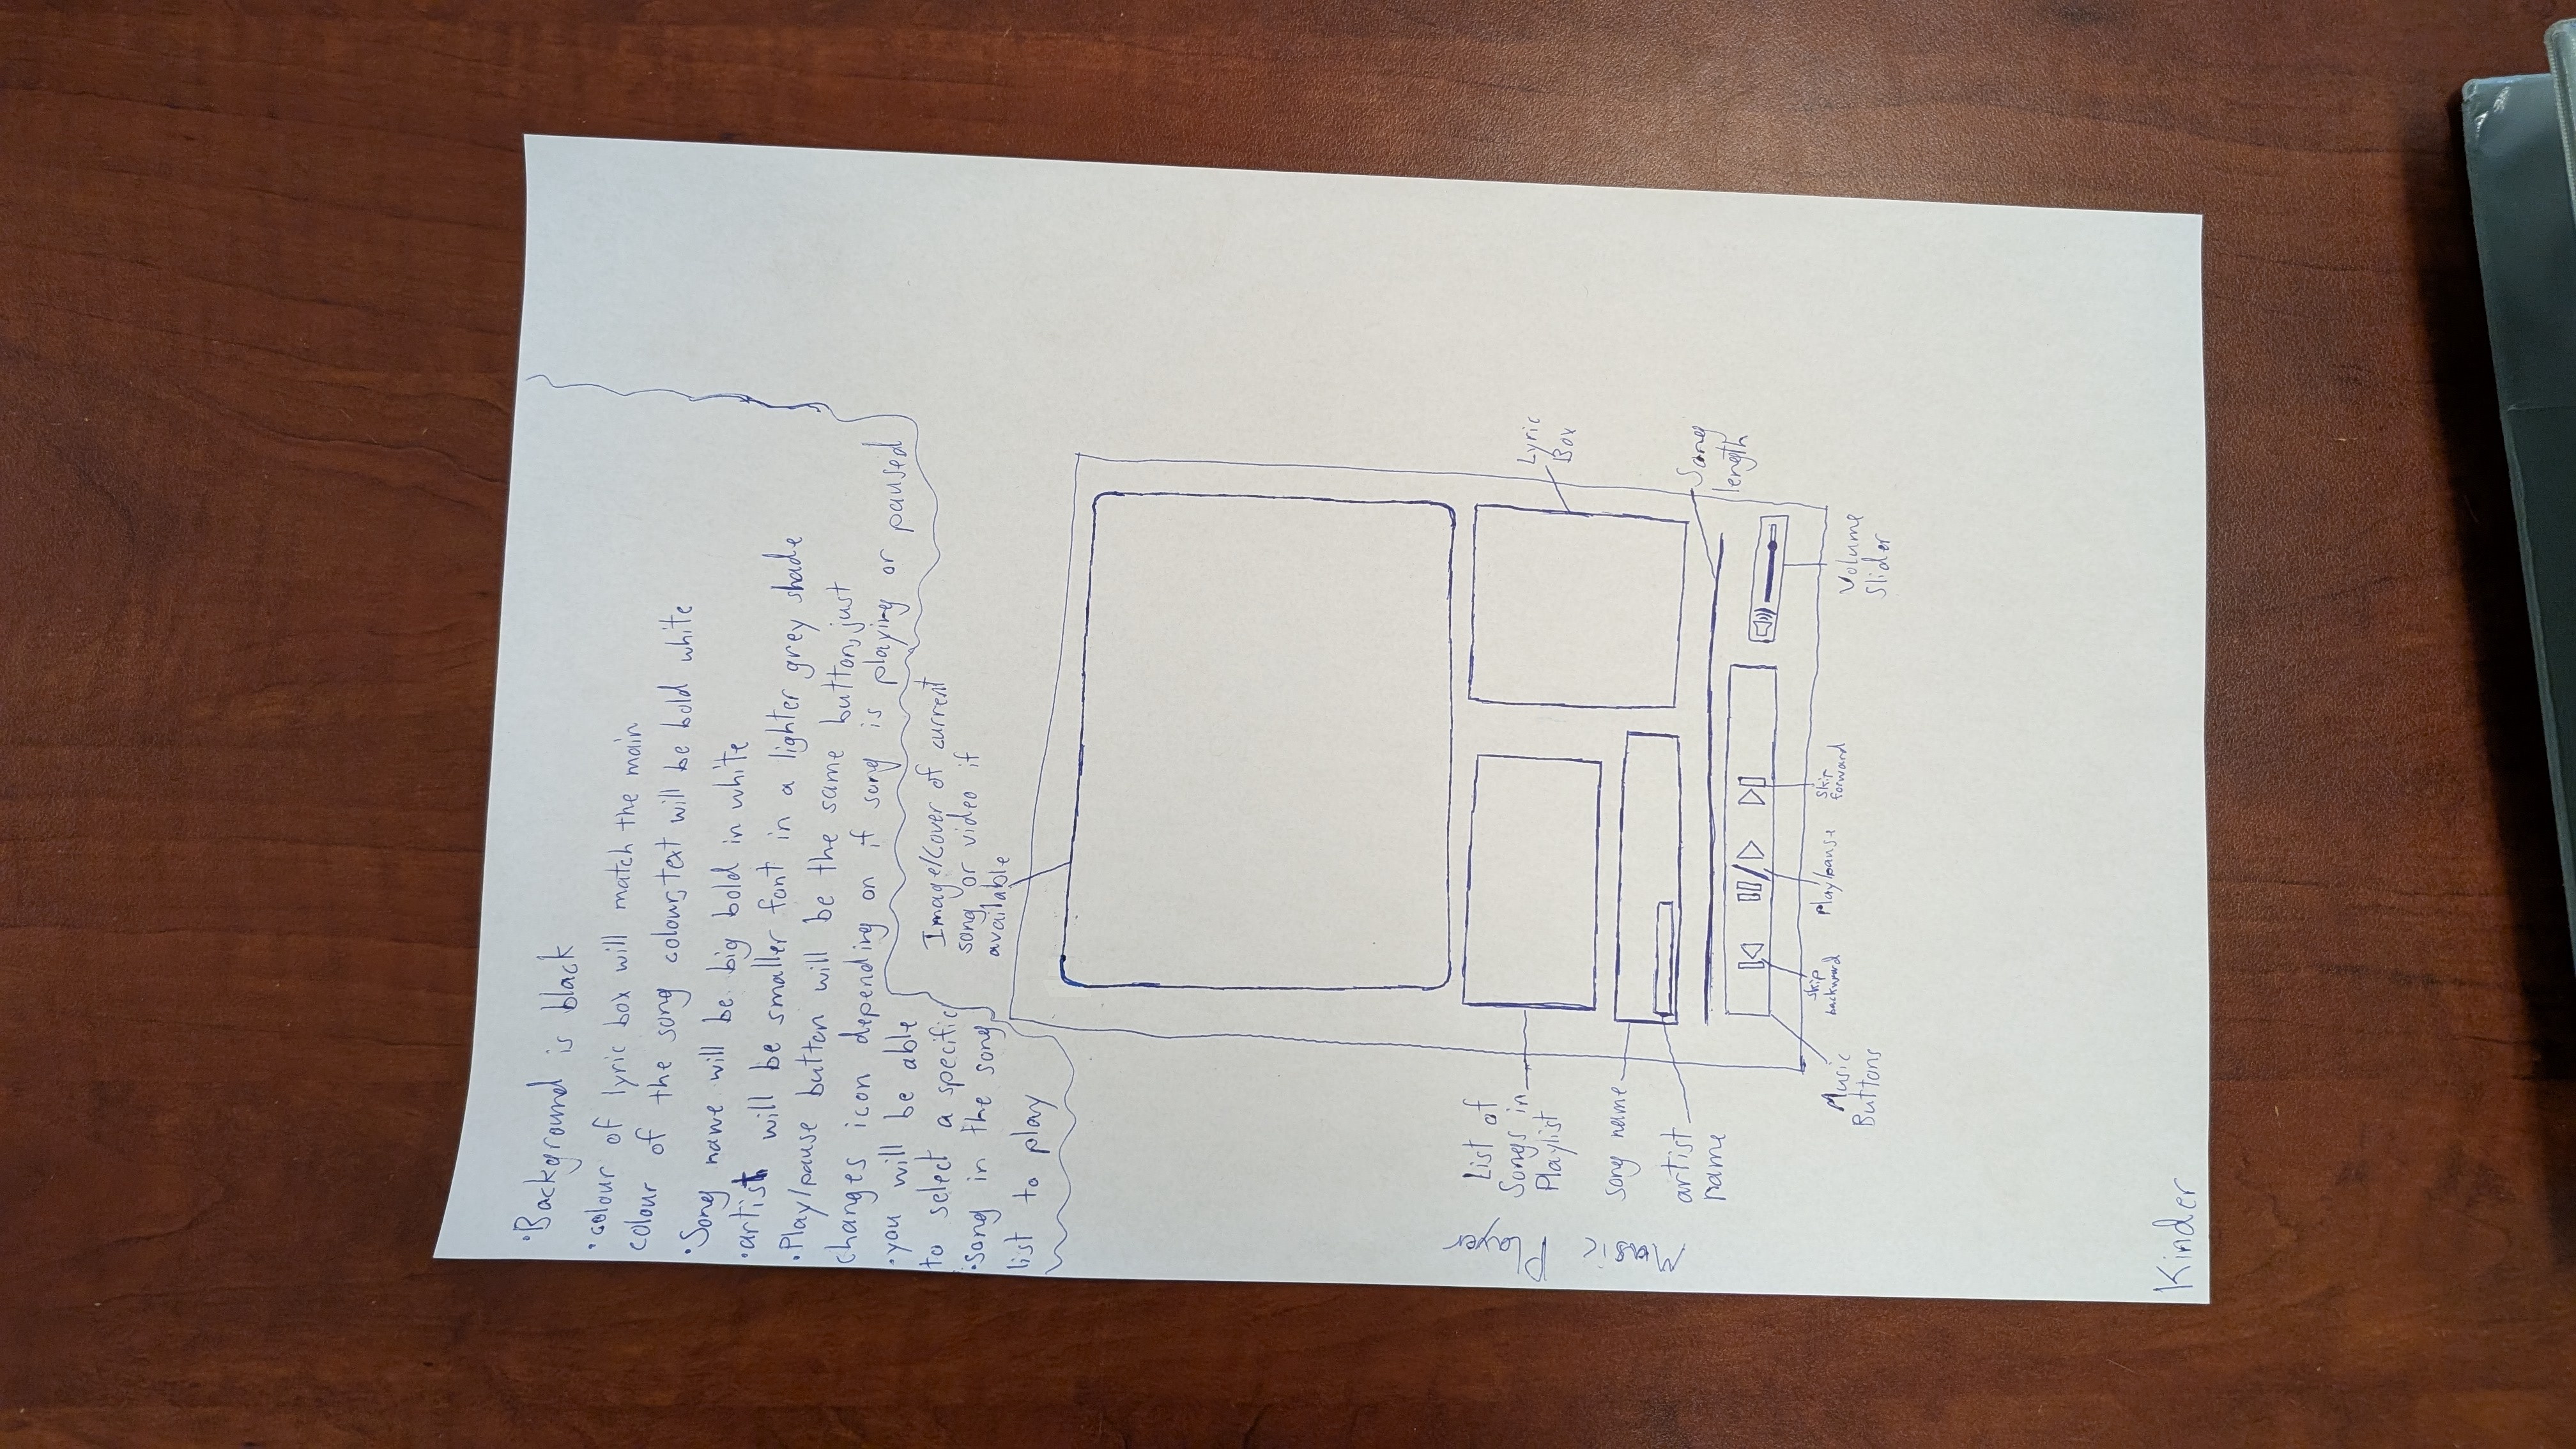 •Background is black
•colour of lyric box will match the main
colour of the song colour, text will be bold white
•Song name will be big bold in white
•artist will be smaller font in a lighter grey shade
•Play/pause button will be the same button, just
changes icon depending on if song is playing or paused
•you will be able
to select a specific
song in the song
list to play
Image/Cover of current
song or video if
available
List of
Songs in
Playlist
Lyric
Box
song name
artist
name
Song
length
Music
Buttons
skip
backward
Play/pause
skip
forward
Volume
Slider
Kinder